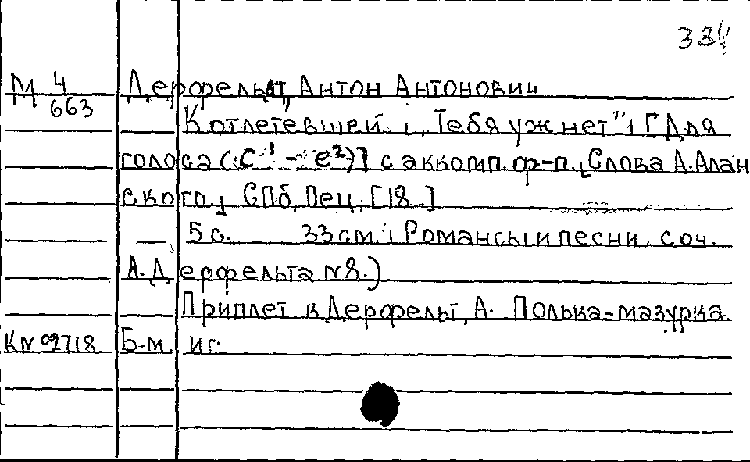 334
М 4/663 Дерфельдт, Антон Антонович
К отлетевшей. „Тебя уж нет". [Для
голоса (c¹ - e²)] с аккомп. ф-п. Слова А. Алан
ского. СПб, Пец, [18 ]
— 5 с. 33 см. (Романсы и песни соч.
А. Дерфельта №8.)
Приплет к Дерфельт, А. Полька-мазурка.
КN 02718 Б-м. иг.